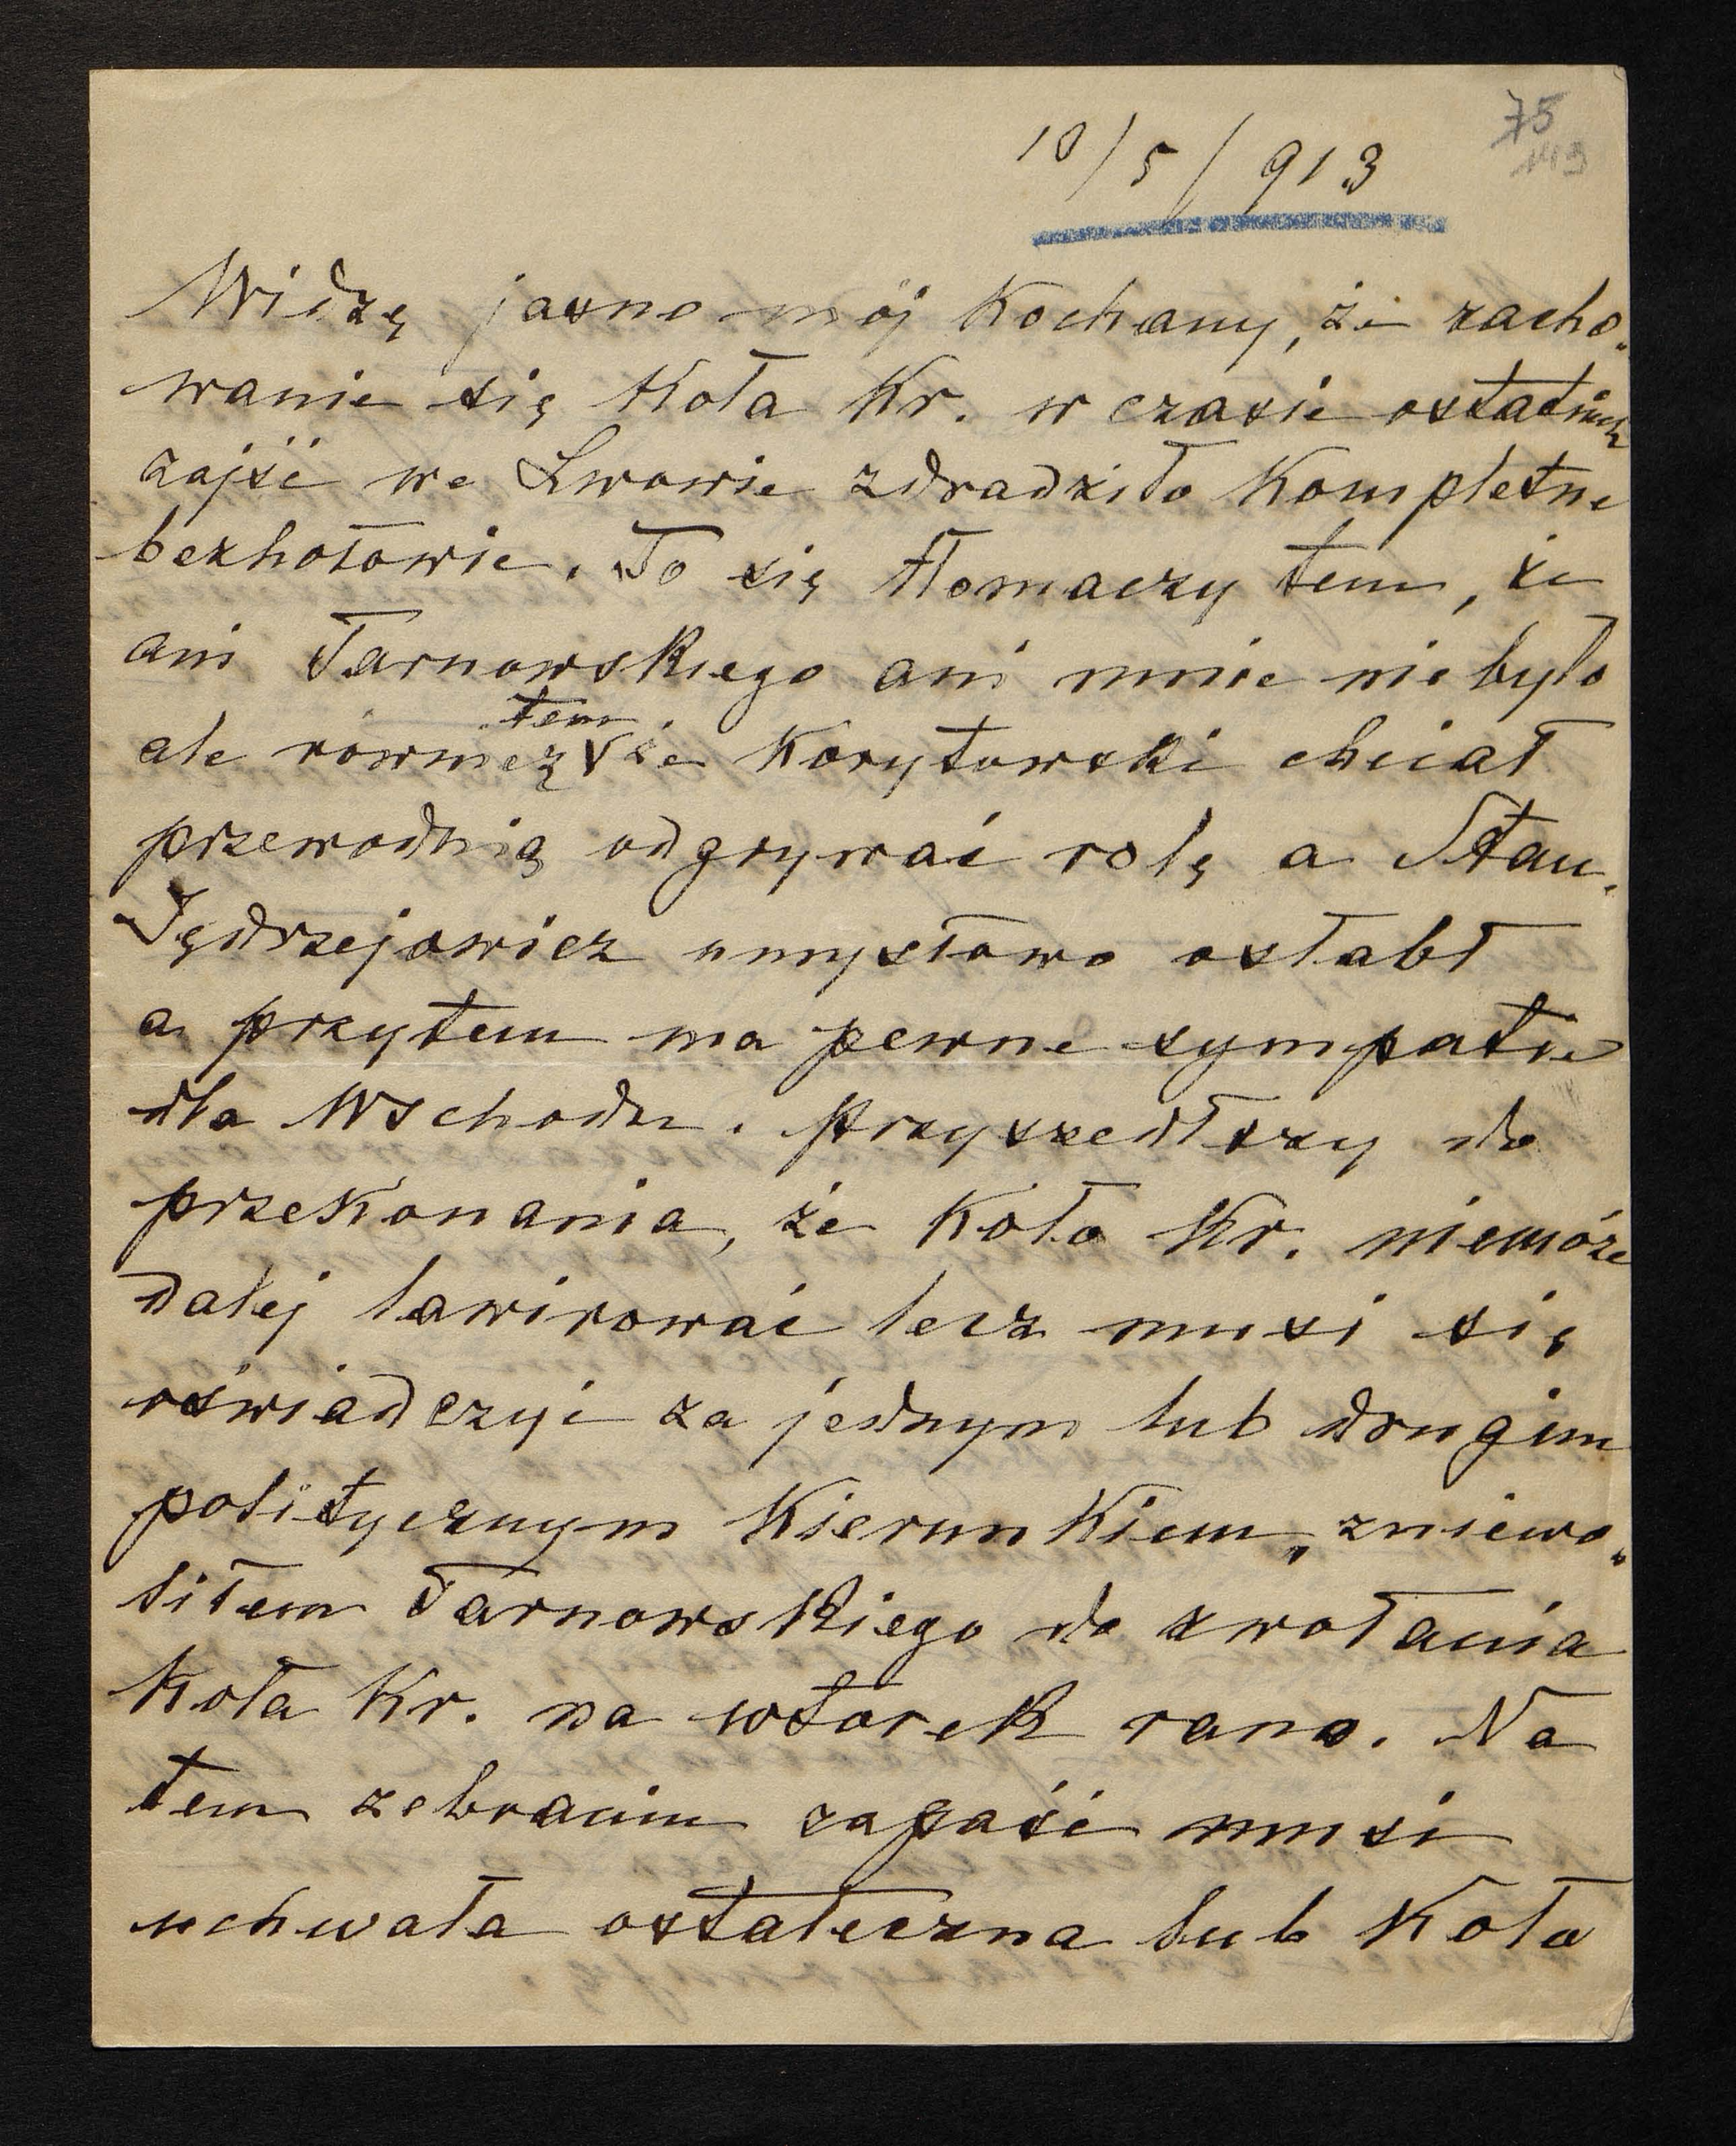 75
149
10/5/913
Widzę jasno mój Kochany, że zacho„
wanie się Koła Kr. w czasie ostatnich
zajść we Lwowie zdradziło Kompletne
bezhołowie. To się tłomaczy tem, że
ani Tarnowskiego ani mnie niebyło
tem
ale również że Korytowski chciał
przewodnią odgrywać rolę a Stan.
Jędrzejowicz umysłowo osłabł
a przytem ma pewne sympatie
dla Wschodu. Przyszedłszy do
przekonania, że Koło Kr. niemóże
dalej lawirować lecz musi się
oświadczyć za jednym lub drugim
politycznym Kierunkiem, zniewo„
liłem Tarnowskiego do zwołania
Koła Kr. na wtorek rano. Na
tem zebraniu zapaść musi
uchwała ostateczna lub Koło